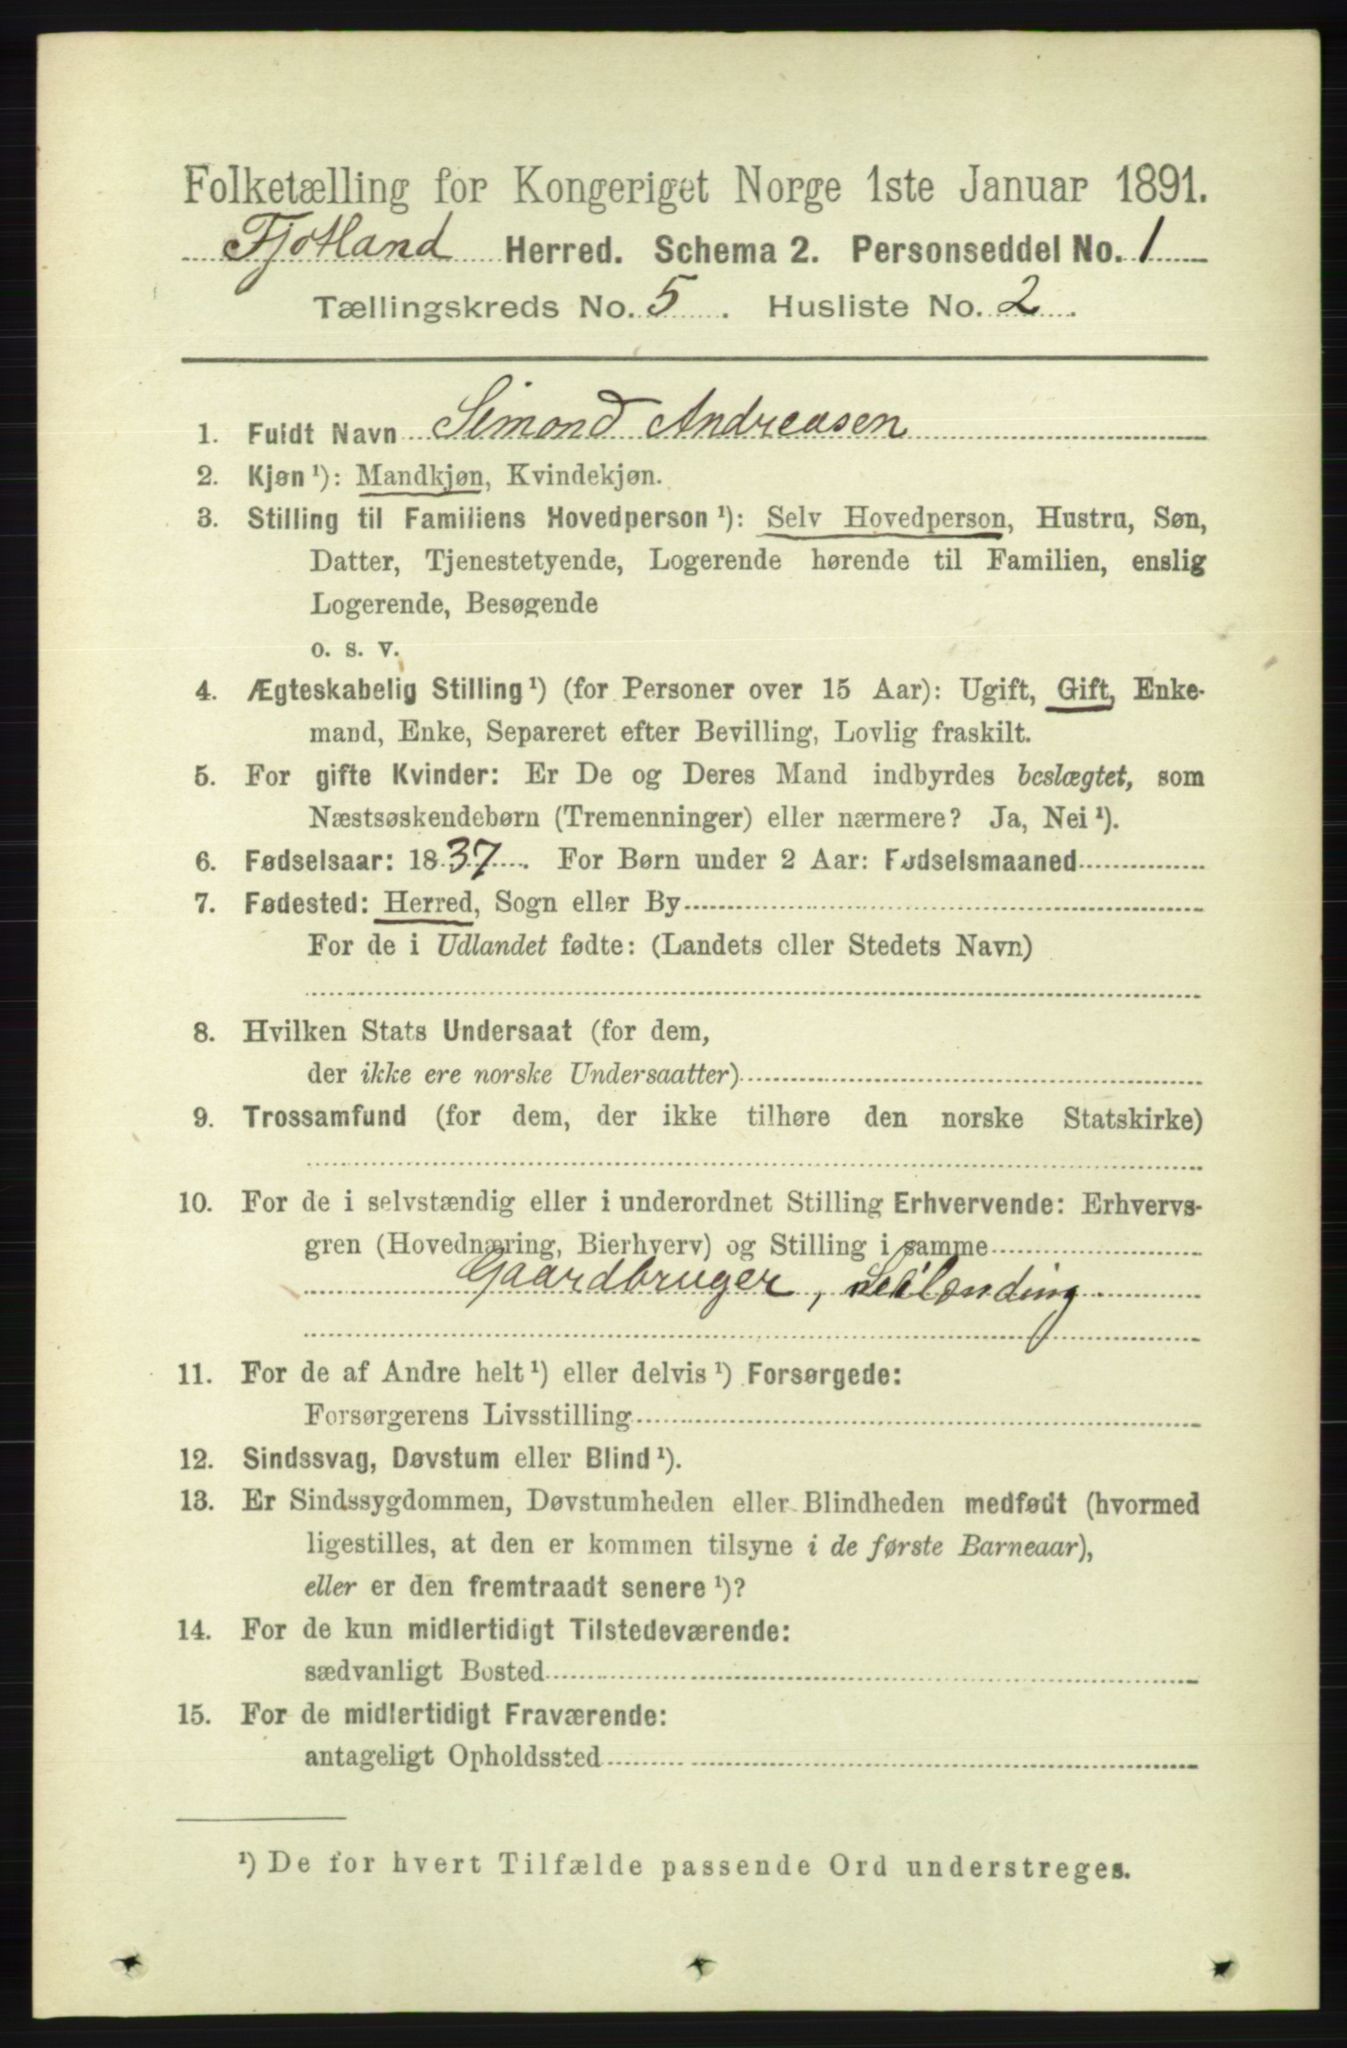 Folketælling for Kongeriget Norge 1ste Januar 1891.
Fjotland Herred. Schema 2. Personseddel No. 1
Tællingskreds No. 5. Husliste No. 2.
1. Fuldt Navn Simond Andreasen
2. Kjøn¹): Mandkjøn, Kvindekjøn.
3. Stilling til Familiens Hovedperson¹): Selv Hovedperson, Hustru, Søn,
Datter, Tjenestetyende, Logerende hørende til Familien, enslig
Logerende, Besøgende
o. s. v.
4. Ægteskabelig Stilling¹) (for Personer over 15 Aar): Ugift, Gift, Enke-
mand, Enke, Separeret efter Bevilling, Lovlig fraskilt.
5. For gifte Kvinder: Er De og Deres Mand indbyrdes beslægtet, som
Næstsøskendebørn (Tremenninger) eller nærmere? Ja, Nei¹).
6. Fødselsaar: 1837. For Børn under 2 Aar: Fødselsmaaned
7. Fødested: Herred, Sogn eller By
For de i Udlandet fødte: (Landets eller Stedets Navn)
8. Hvilken Stats Undersaat (for dem,
der ikke ere norske Undersaatter)
9. Trossamfund (for dem, der ikke tilhøre den norske Statskirke)
10. For de i selvstændig eller i underordnet Stilling Erhvervende: Erhvervs-
gren (Hovednæring, Bierhverv) og Stilling i samme
Gaardbruger, Leilænding
11. For de af Andre helt¹) eller delvis¹) Forsørgede:
Forsørgerens Livsstilling
12. Sindssvag, Døvstum eller Blind¹).
13. Er Sindssygdommen, Døvstumheden eller Blindheden medfødt (hvormed
ligestilles, at den er kommen tilsyne i de første Barneaar),
eller er den fremtraadt senere¹)?
14. For de kun midlertidigt Tilstedeværende:
sædvanligt Bosted
15. For de midlertidigt Fraværende:
antageligt Opholdssted
¹) De for hvert Tilfælde passende Ord understreges.